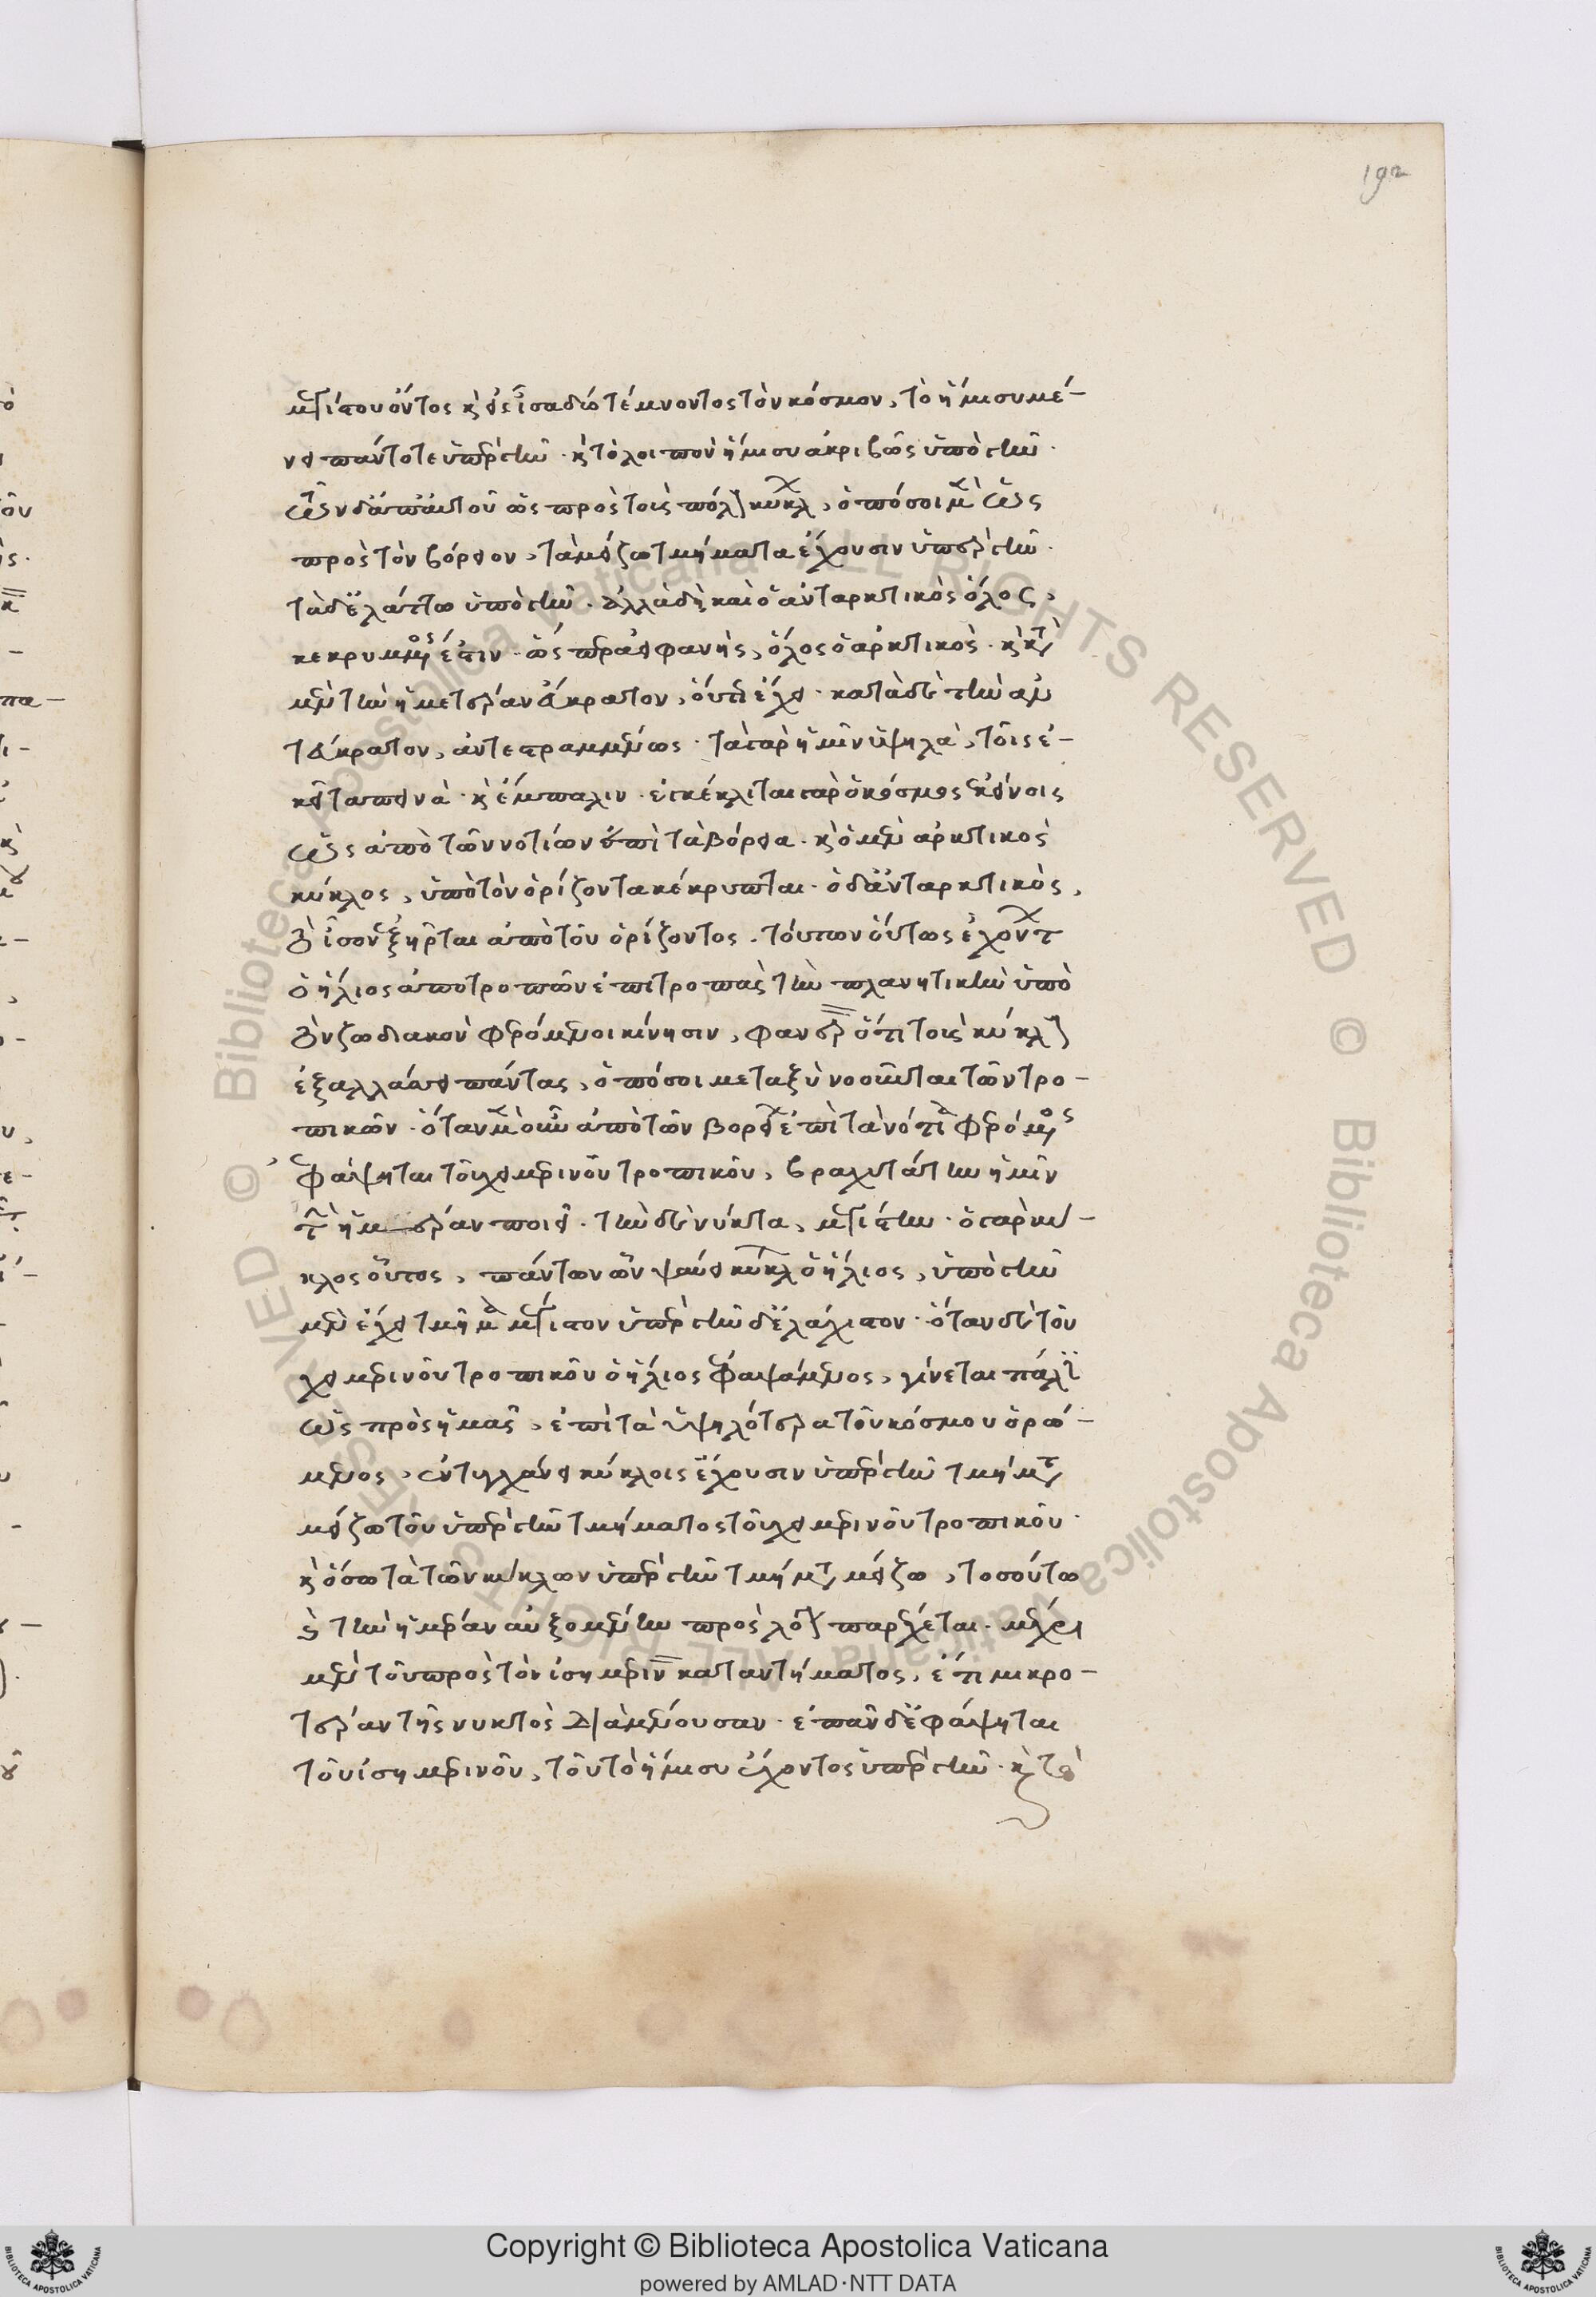 192
μεγίστου ὄντος καὶ εἰς ἴσα δύο τέμνοντος τὸν κόσμον, τὸ ἥμισυ μέ-
νει πάντοτε ὑπὲρ γῆν. καὶ τὸ λοιπὸν ἥμισυ ἀκριβῶς ὑπὸ γῆν.
πρὸς τοῖς κύκλ, ὁπόσοι μὲν ὡς
πρὸς τὸν βόρειον, τὰ μείζω τμήματα ἔχουσιν ὑπὲρ γῆν.
τὰ δὲ ἐλάττω ὑπὸ γῆν. ἀλλὰ δὴ καὶ ὁ ἀνταρκτικὸς ὅλος,
κεκρυμμένος ἐστίν. ὥσπερ ἀειφανὴς, ὅλος ὁ ἀρκτικός. καὶ κατὰ
μὲν τὴν ἡμετέραν εὔκρατον, οὕτως ἔχει. κατὰ δὲ τὴν ἀν
τεύκρατον, ἀντεστραμμένως. τὰ γὰρ ἡμῖν ὑψηλὰ, τοῖς ἐ-
κεῖ ταπεινά. καὶ ἔμπαλιν. ἐγκέκλιται γὰρ ὁ κόσμος ἐκείνοις
ὡς ἀπὸ τῶν νοτίων ἐπὶ τὰ βόρεια. καὶ ὁ μὲν ἀρκτικὸς
κύκλος, ὑπὸ τὸν ὁρίζοντα κέκρυπται. ὁ δὲ ἀνταρκτικὸς,
τὸ ἴσον ἐξῆρται ἀπὸ τοῦ ὁρίζοντος. τούτων οὕτως ἐχόντων
ὁ ἥλιος ἀπὸ τροπῶν ἐπὶ τροπὰς τὴν πλανητικὴν ὑπὸ
τὸν ζωδιακὸν φερόμενος κίνησιν, φανερὸν ὅτι τοῖς κύκλοις
ἐξαλλάσσει πάντας, ὁπόσοι μεταξὺ νοοῦνται τῶν τρο-
πικῶν. ὅταν μὲν οὖν ἀπὸ τῶν βορείων ἐπὶ τὰ νότια φερόμενος
ἐφάψηται τοῦ χειμερινοῦ τροπικοῦ, βραχυτάτην ἡμῖν
τὴν ἡμέραν ποιεῖ. τὴν δὲ νύκτα, μεγίστην. ὁ γὰρ κύ-
κλος οὗτος, πάντων ὧν ψαύει κύκλων ὁ ἥλιος, ὑπὸ γῆν
μὲν ἔχει τμῆμα μέγιστον ὑπὲρ γῆν δὲ ἐλάχιστον. ὅταν δὲ τοῦ
χειμερινοῦ τροπικοῦ ὁ ἥλιος ἐφαψάμενος, γίνεται πάλιν
ὡς πρὸς ἡμᾶς, ἐπὶ τὰ ὑψηλότερα τοῦ κόσμου ὁρώ-
μενος, ἐντυγχάνει κύκλοις ἔχουσιν ὑπὲρ γῆν τμήματα
μείζω τοῦ ὑπὲρ γῆν τμήματος τοῦ χειμερινοῦ τροπικοῦ.
καὶ ὅσω τὰ τῶν κύκλων ὑπὲρ γῆν τμήματα μείζω, τοσούτω
καὶ τὴν ἡμέραν αὐξομένην πρὸς λόγον παρέχεται. μέχρι
μὲν τοῦ πρὸς τὸν ἰσημερινὸν καταντήματος, ἔτι μικρο-
τέραν τῆς νυκτὸς διαμένουσαν. ἐπὰν δὲ ἐφάψηται
τοῦ ἰσημερινοῦ, τοῦ τὸ ἥμισυ ἔχοντος ὑπὲρ γῆν. καὶ τὸ
Copyright © Biblioteca Apostolica Vaticana
powered by AMLAD·NTT DATA